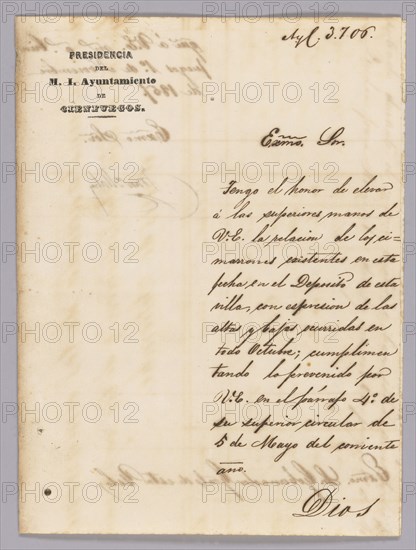 Ayl. 3.706.
PRESIDENCIA
DEL
M. I. Ayuntamiento
DE
CIENFUEGOS.
Exmo. Sor.
Tengo el honor de elevar
á las superiores manos de
V.E. la relacion de los ci-
marrones existentes en esta
fecha, en el Deposito de esta
villa, con espresion de las
altas y bajas ocurridas en
todo Octubre; cumplimen
tando lo prevenido por
V.E. en el párrafo 4º de
su superior circular de
5 de Mayo del corriente
año.
Dios